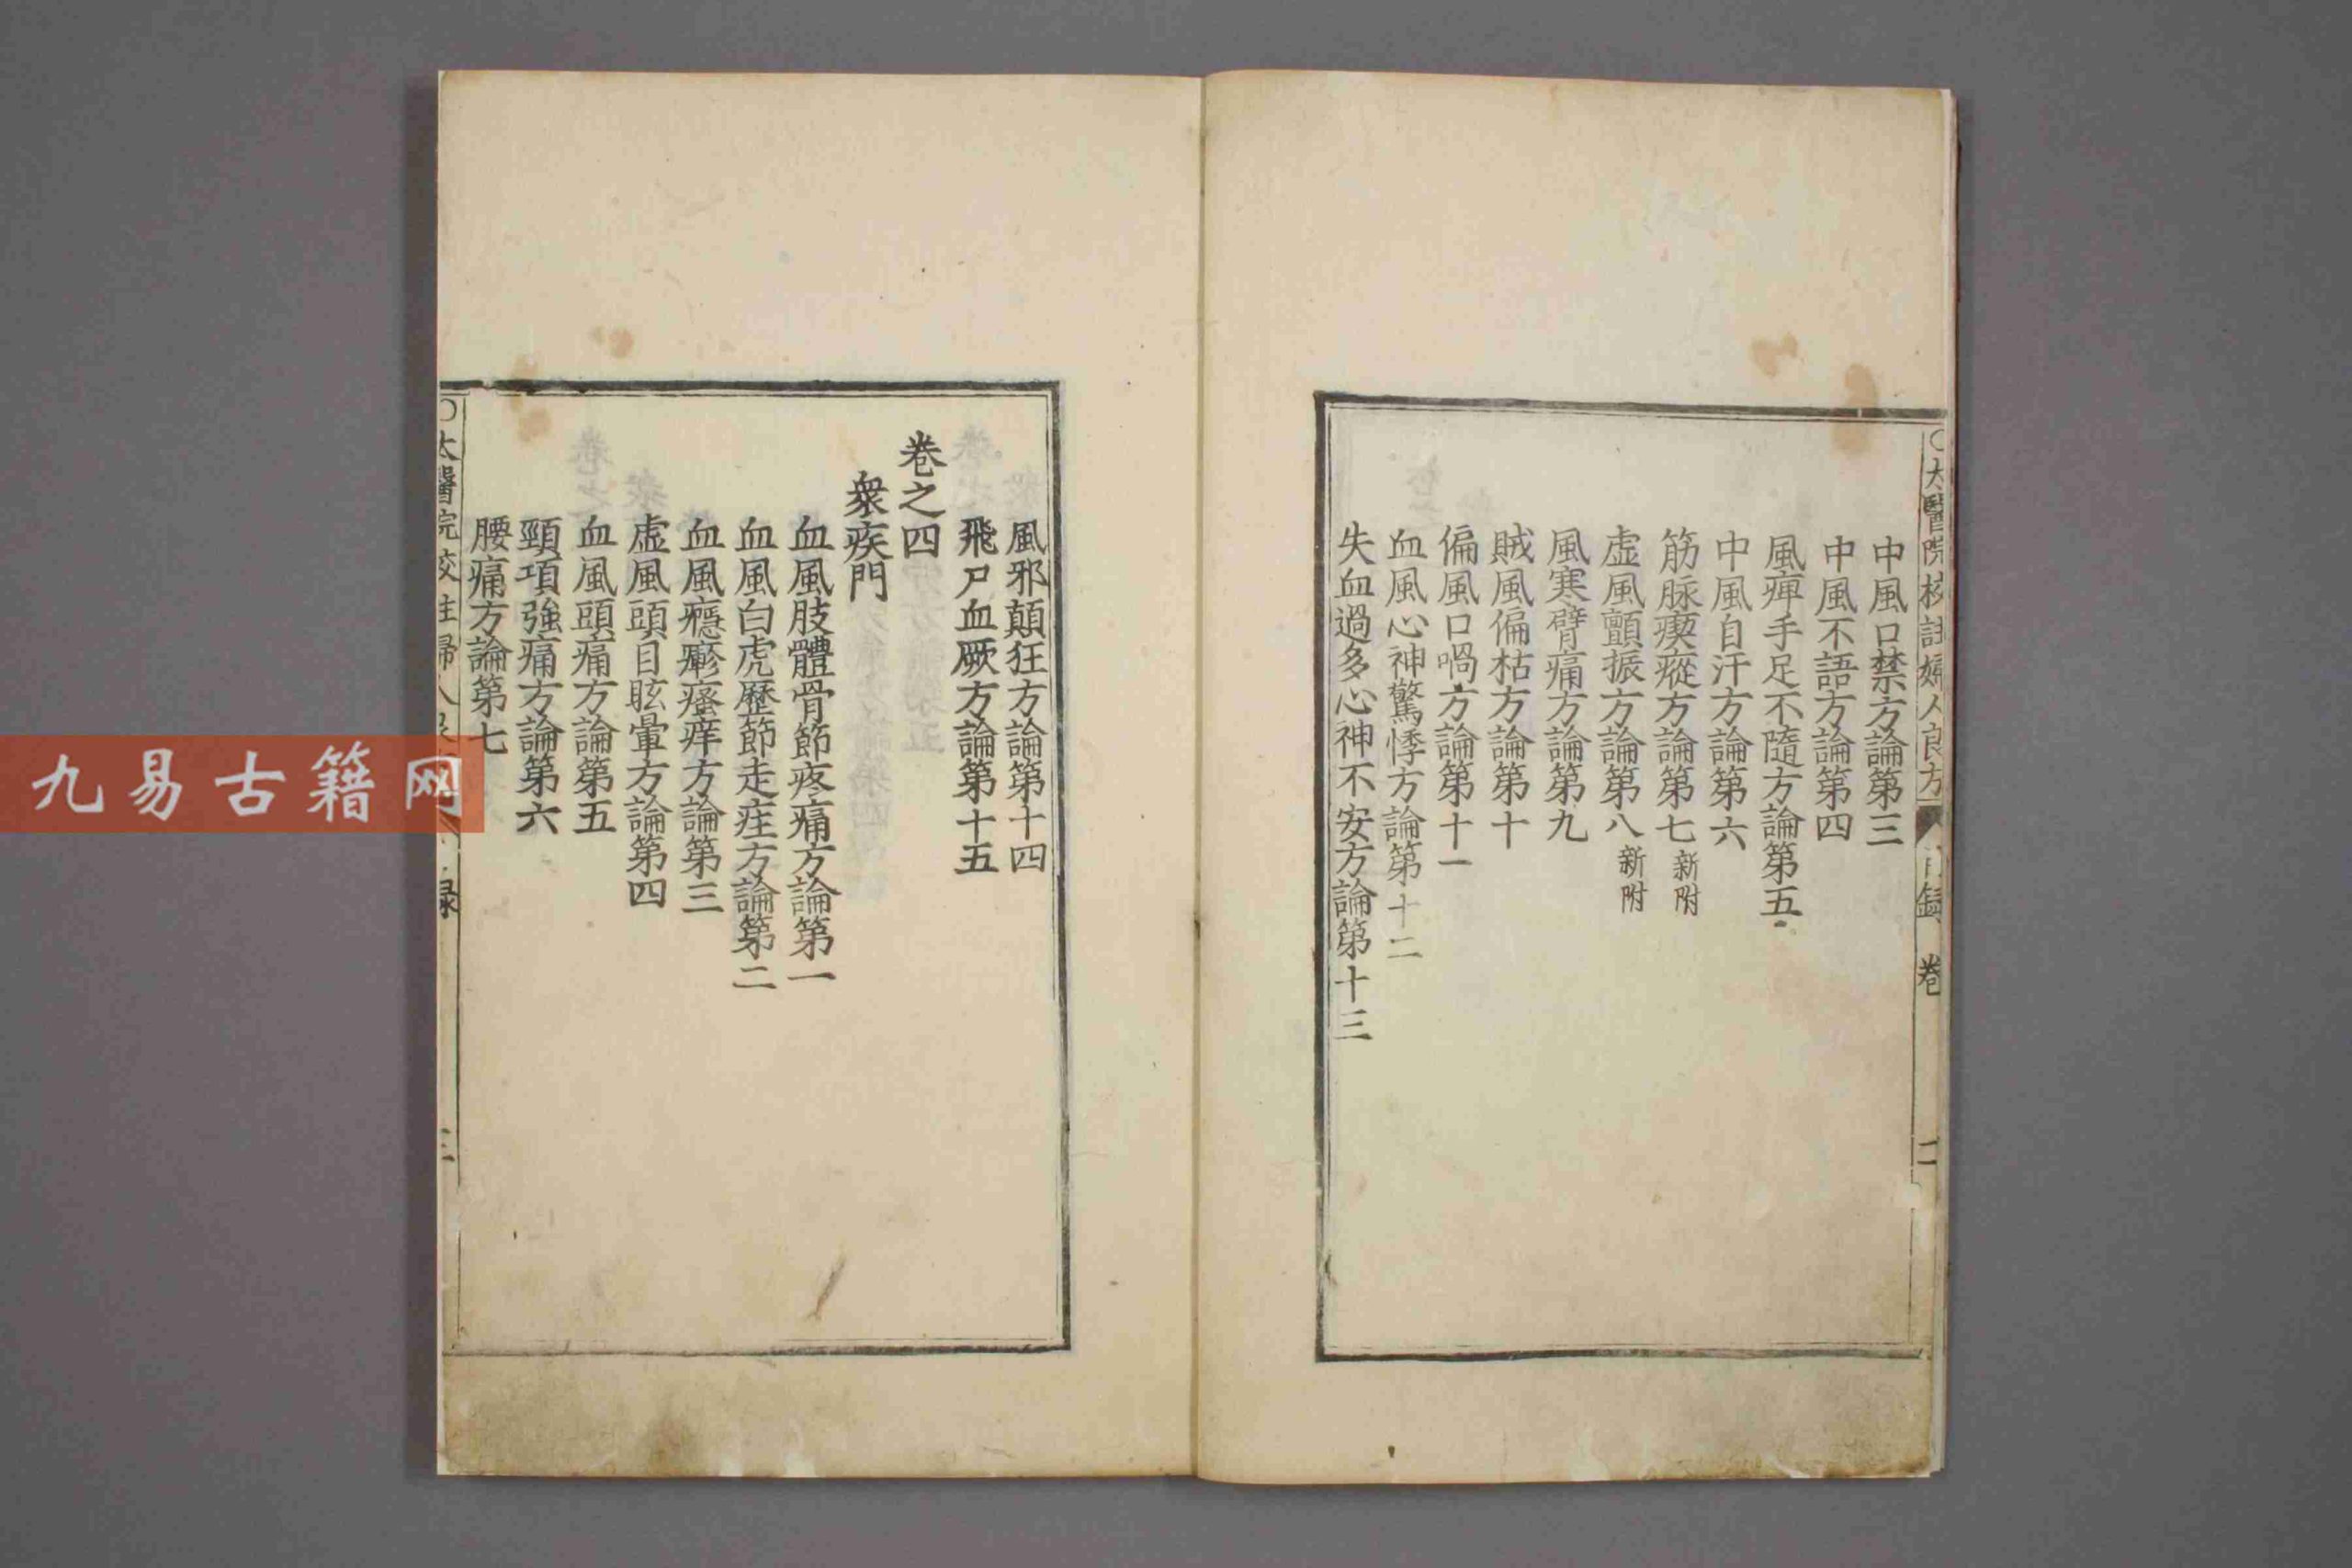 ○太醫院校註婦人良方 目録 卷 二
中風口禁方論第三
中風不語方論第四
風痺手足不隨方論第五
中風自汗方論第六
筋脉瘈瘲方論第七 新附
虛風顫振方論第八 新附
風寒臂痛方論第九
賊風偏枯方論第十
偏風口喎方論第十一
血風心神驚悸方論第十二
失血過多心神不安方論第十三
風邪顛狂方論第十四
飛尸血厥方論第十五
卷之四
衆疾門
血風肢體骨節疼痛方論第一
血風白虎歷節走疰方論第二
血風癮瘮瘙痒方論第三
虛風頭目眩暈方論第四
血風頭痛方論第五
頸項強痛方論第六
腰痛方論第七
○太醫院校註婦人良 録 三
九易古籍网